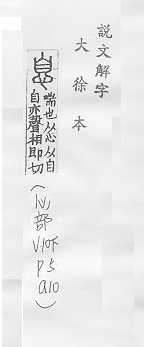 說文解字
大徐本
息
喘也从心从自
自亦聲相即切
(心部
V10下
P5
a10)